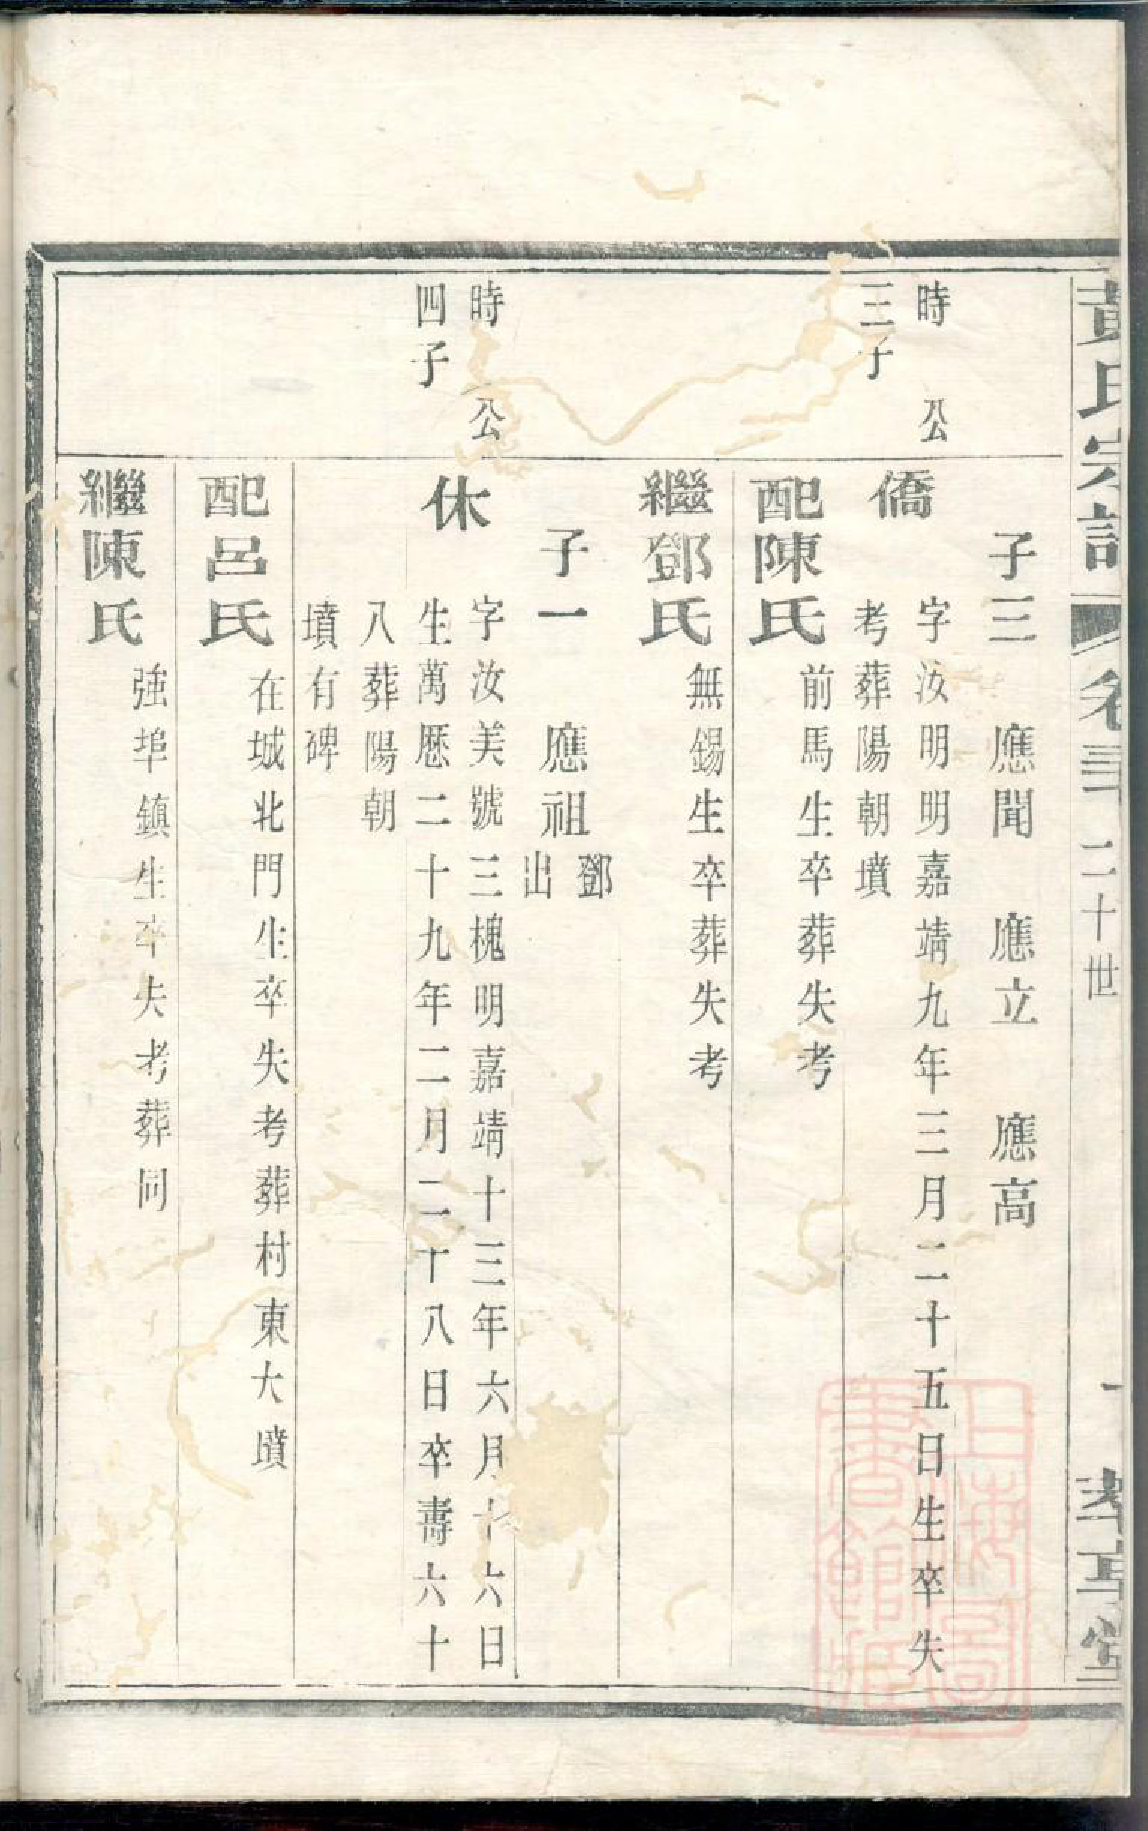 黃氏宗譜 卷三十 二十世
子三 應聞 應立 應高
時 公
三子
僑
字汝明明嘉靖九年三月二十五日生卒失
考葬陽朝墳
配陳氏 前馬生卒葬失考
繼鄧氏 無錫生卒葬失考
子一 應祖 鄧
出
時 公
四子
休
字汝美號三槐明嘉靖十三年六月十六日
生萬歷二十九年二月二十八日卒壽六十
八葬陽朝
墳有碑
配呂氏 在城北門生卒失考葬村東大墳
繼陳氏 強埠鎮生卒失考葬同
上海圖
書館藏